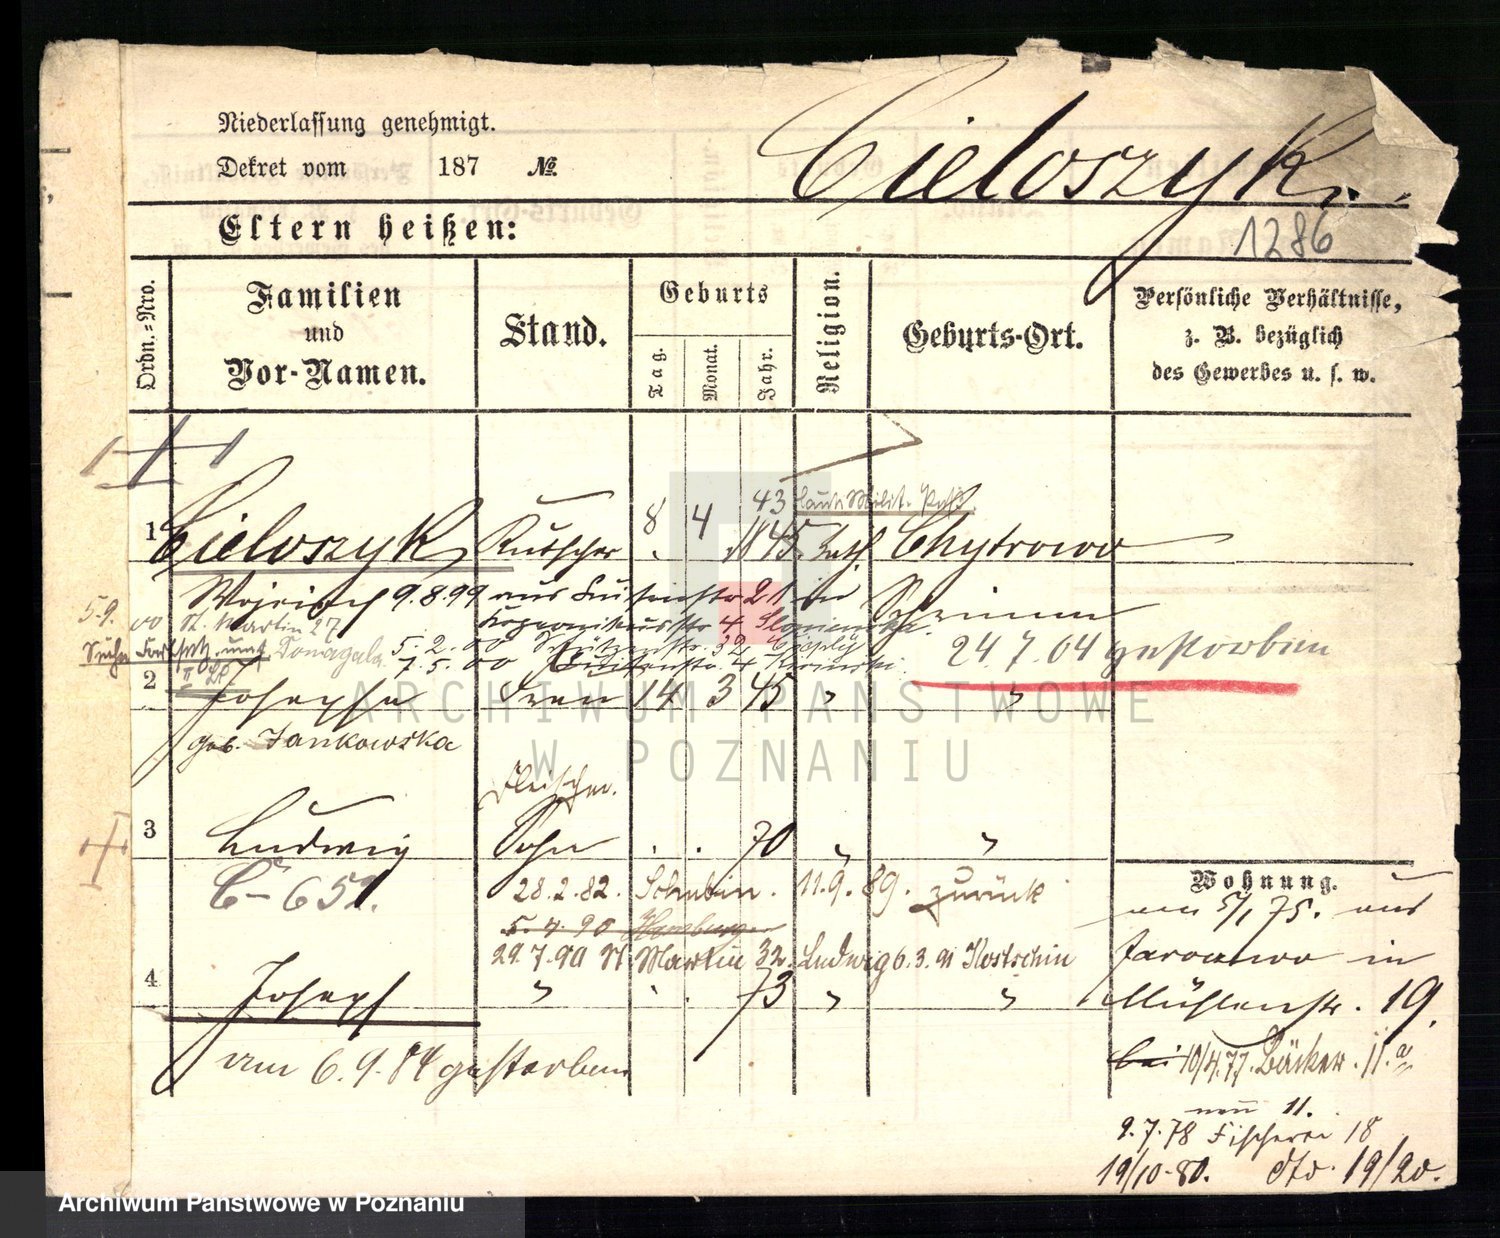 Niederlassung genehmigt.
Dekret vom 187 №
Cieloszyk.
Eltern heißen:
1286
Ordn.=Nro.
Familien
und
Vor-Namen.
Stand.
Geburts
Tag.
Monat.
Jahr.
Religion.
Geburts-Ort.
Persönliche Verhältnisse,
z. B. bezüglich
des Gewerbes u. s. w.
43 laut Milit. Paß.
1 Cieloszyk Kutscher 8 4 1845. kath Chytrowo
9.8.99 aus 21 in Schrimm
5.9. 00 St. Martin 27 4
5.2.00 32
7.5.00 4
24.7.04 gestorben
2 Josepha Frau 14 3 45 " "
geb. Jankowska
Fleischer.
3 Ludwig Sohn . . 70 " "
C-651.
28.2.82. Schubin. 11.9.89. zurück
5.4.90 Hamburg
29.7.90 St Martin 32. Ludwig 6.3.91 Kostschin
4 Joseph " . . 73 " "
am 6.9.84 gestorben
Wohnung.
am 5/1 75. aus
in
Mühlenstr. 19.
bei 10/4.77. Bäcker. 11.a
neu 11.
9.7.78 Fischerei 18
19/10-80. dto. 19/20.
ARCHIWUM PAŃSTWOWE
W POZNANIU
Archiwum Państwowe w Poznaniu